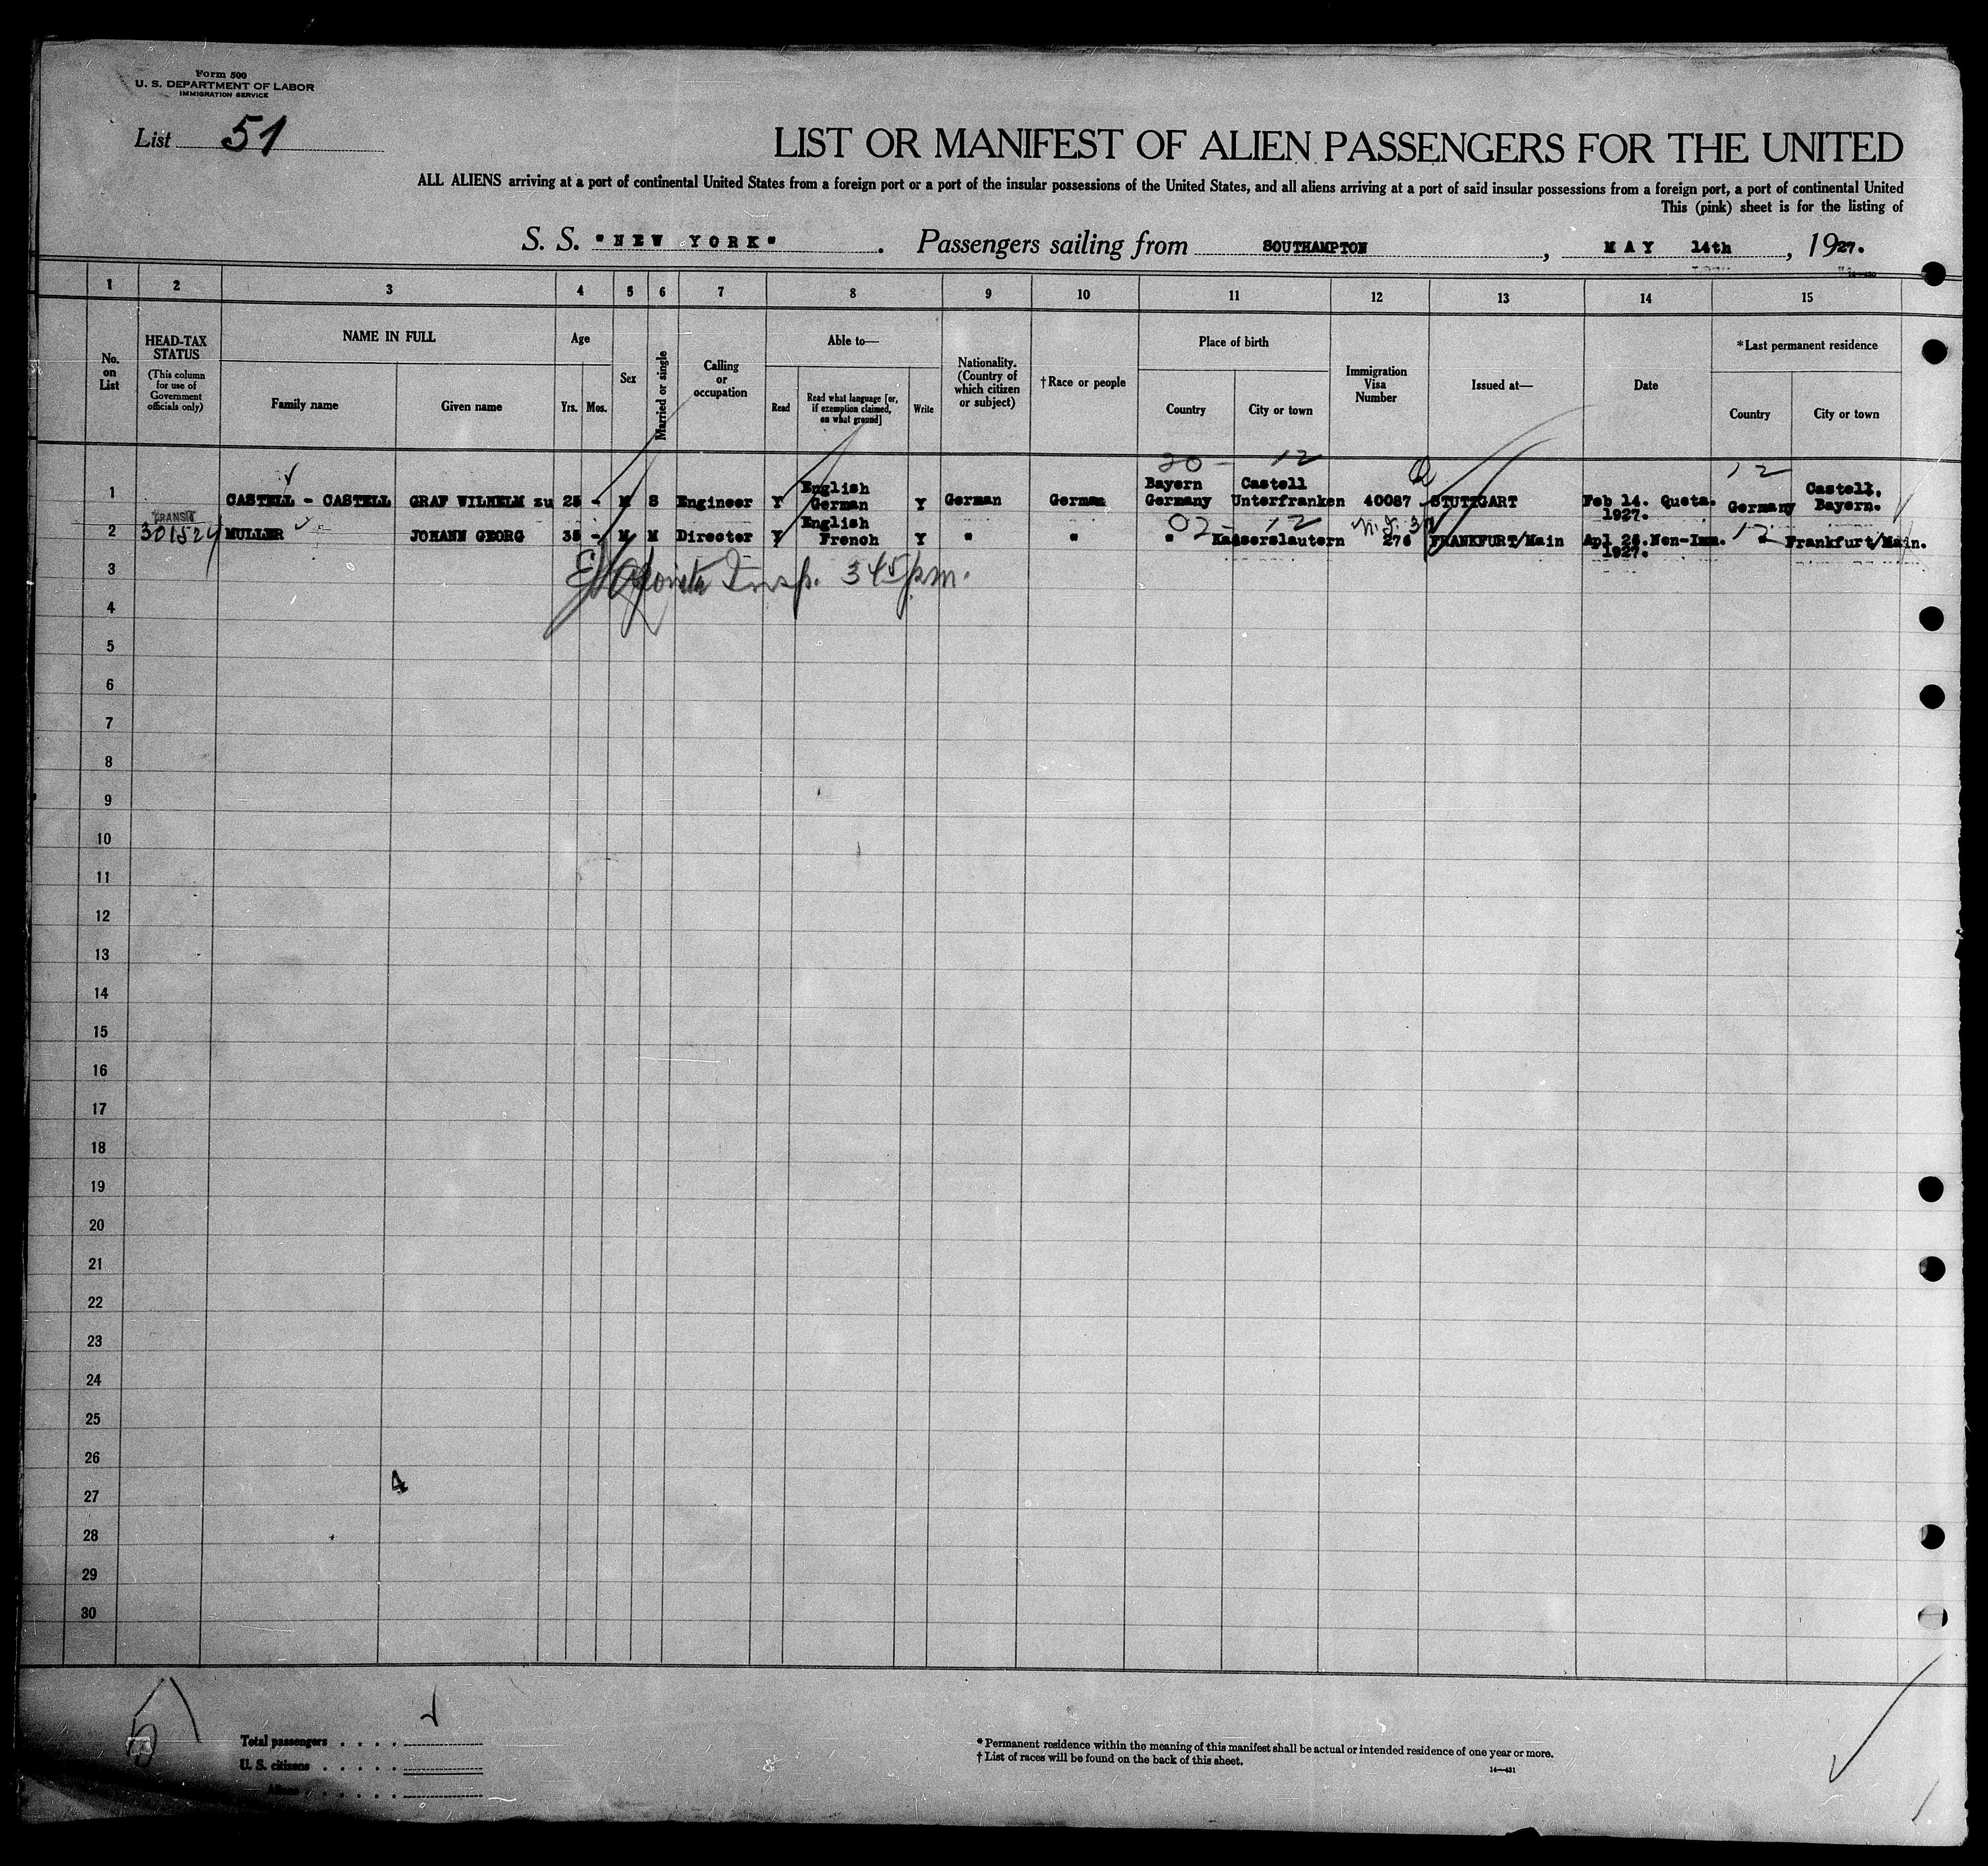 Form 500
U. S. DEPARTMENT OF LABOR
IMMIGRATION SERVICE
List 51
LIST OR MANIFEST OF ALIEN PASSENGERS FOR THE UNITED
ALL ALIENS arriving at a port of continental United States from a foreign port or a port of the insular possessions of the United States, and all aliens arriving at a port of said insular possessions from a foreign port, a port of continental United
This (pink) sheet is for the listing of
S. S. "NEW YORK". Passengers sailing from SOUTHAMPTON, MAY 14th, 1927.
1 2 3 4 5 6 7 8 9 10 11 12 13 14 15
No. on List
HEAD-TAX STATUS
(This column for use of Government officials only)
NAME IN FULL
Family name Given name
Age
Yrs. Mos.
Sex
Married or single
Calling or occupation
Able to—
Read
Read what language [or, if exemption claimed, on what ground]
Write
Nationality. (Country of which citizen or subject)
†Race or people
Place of birth
Country City or town
Immigration Visa Number
Issued at—
Date
*Last permanent residence
Country City or town
20 - 12 12
1 CASTELL - CASTELL GRAF WILHELM zu 25 - M S Engineer Y English German Y German German Bayern Germany Castell Unterfranken 40087 STUTTGART Feb 14. 1927. Quota. Germany Castell, Bayern.
TRANSIT
02 - 12 12
2 301524 MULLER JOHANN GEORG 35 - M M Director Y English French Y " " " Kaiserslautern 276 FRANKFURT/Main Apl 26. 1927. Non-Imm. " Frankfurt/Main.
3 Insp. 345 pm.
4
5
6
7
8
9
10
11
12
13
14
15
16
17
18
19
20
21
22
23
24
25
26
4
27
28
29
30
Total passengers
U. S. citizens
Aliens
* Permanent residence within the meaning of this manifest shall be actual or intended residence of one year or more.
† List of races will be found on the back of this sheet.
14—431